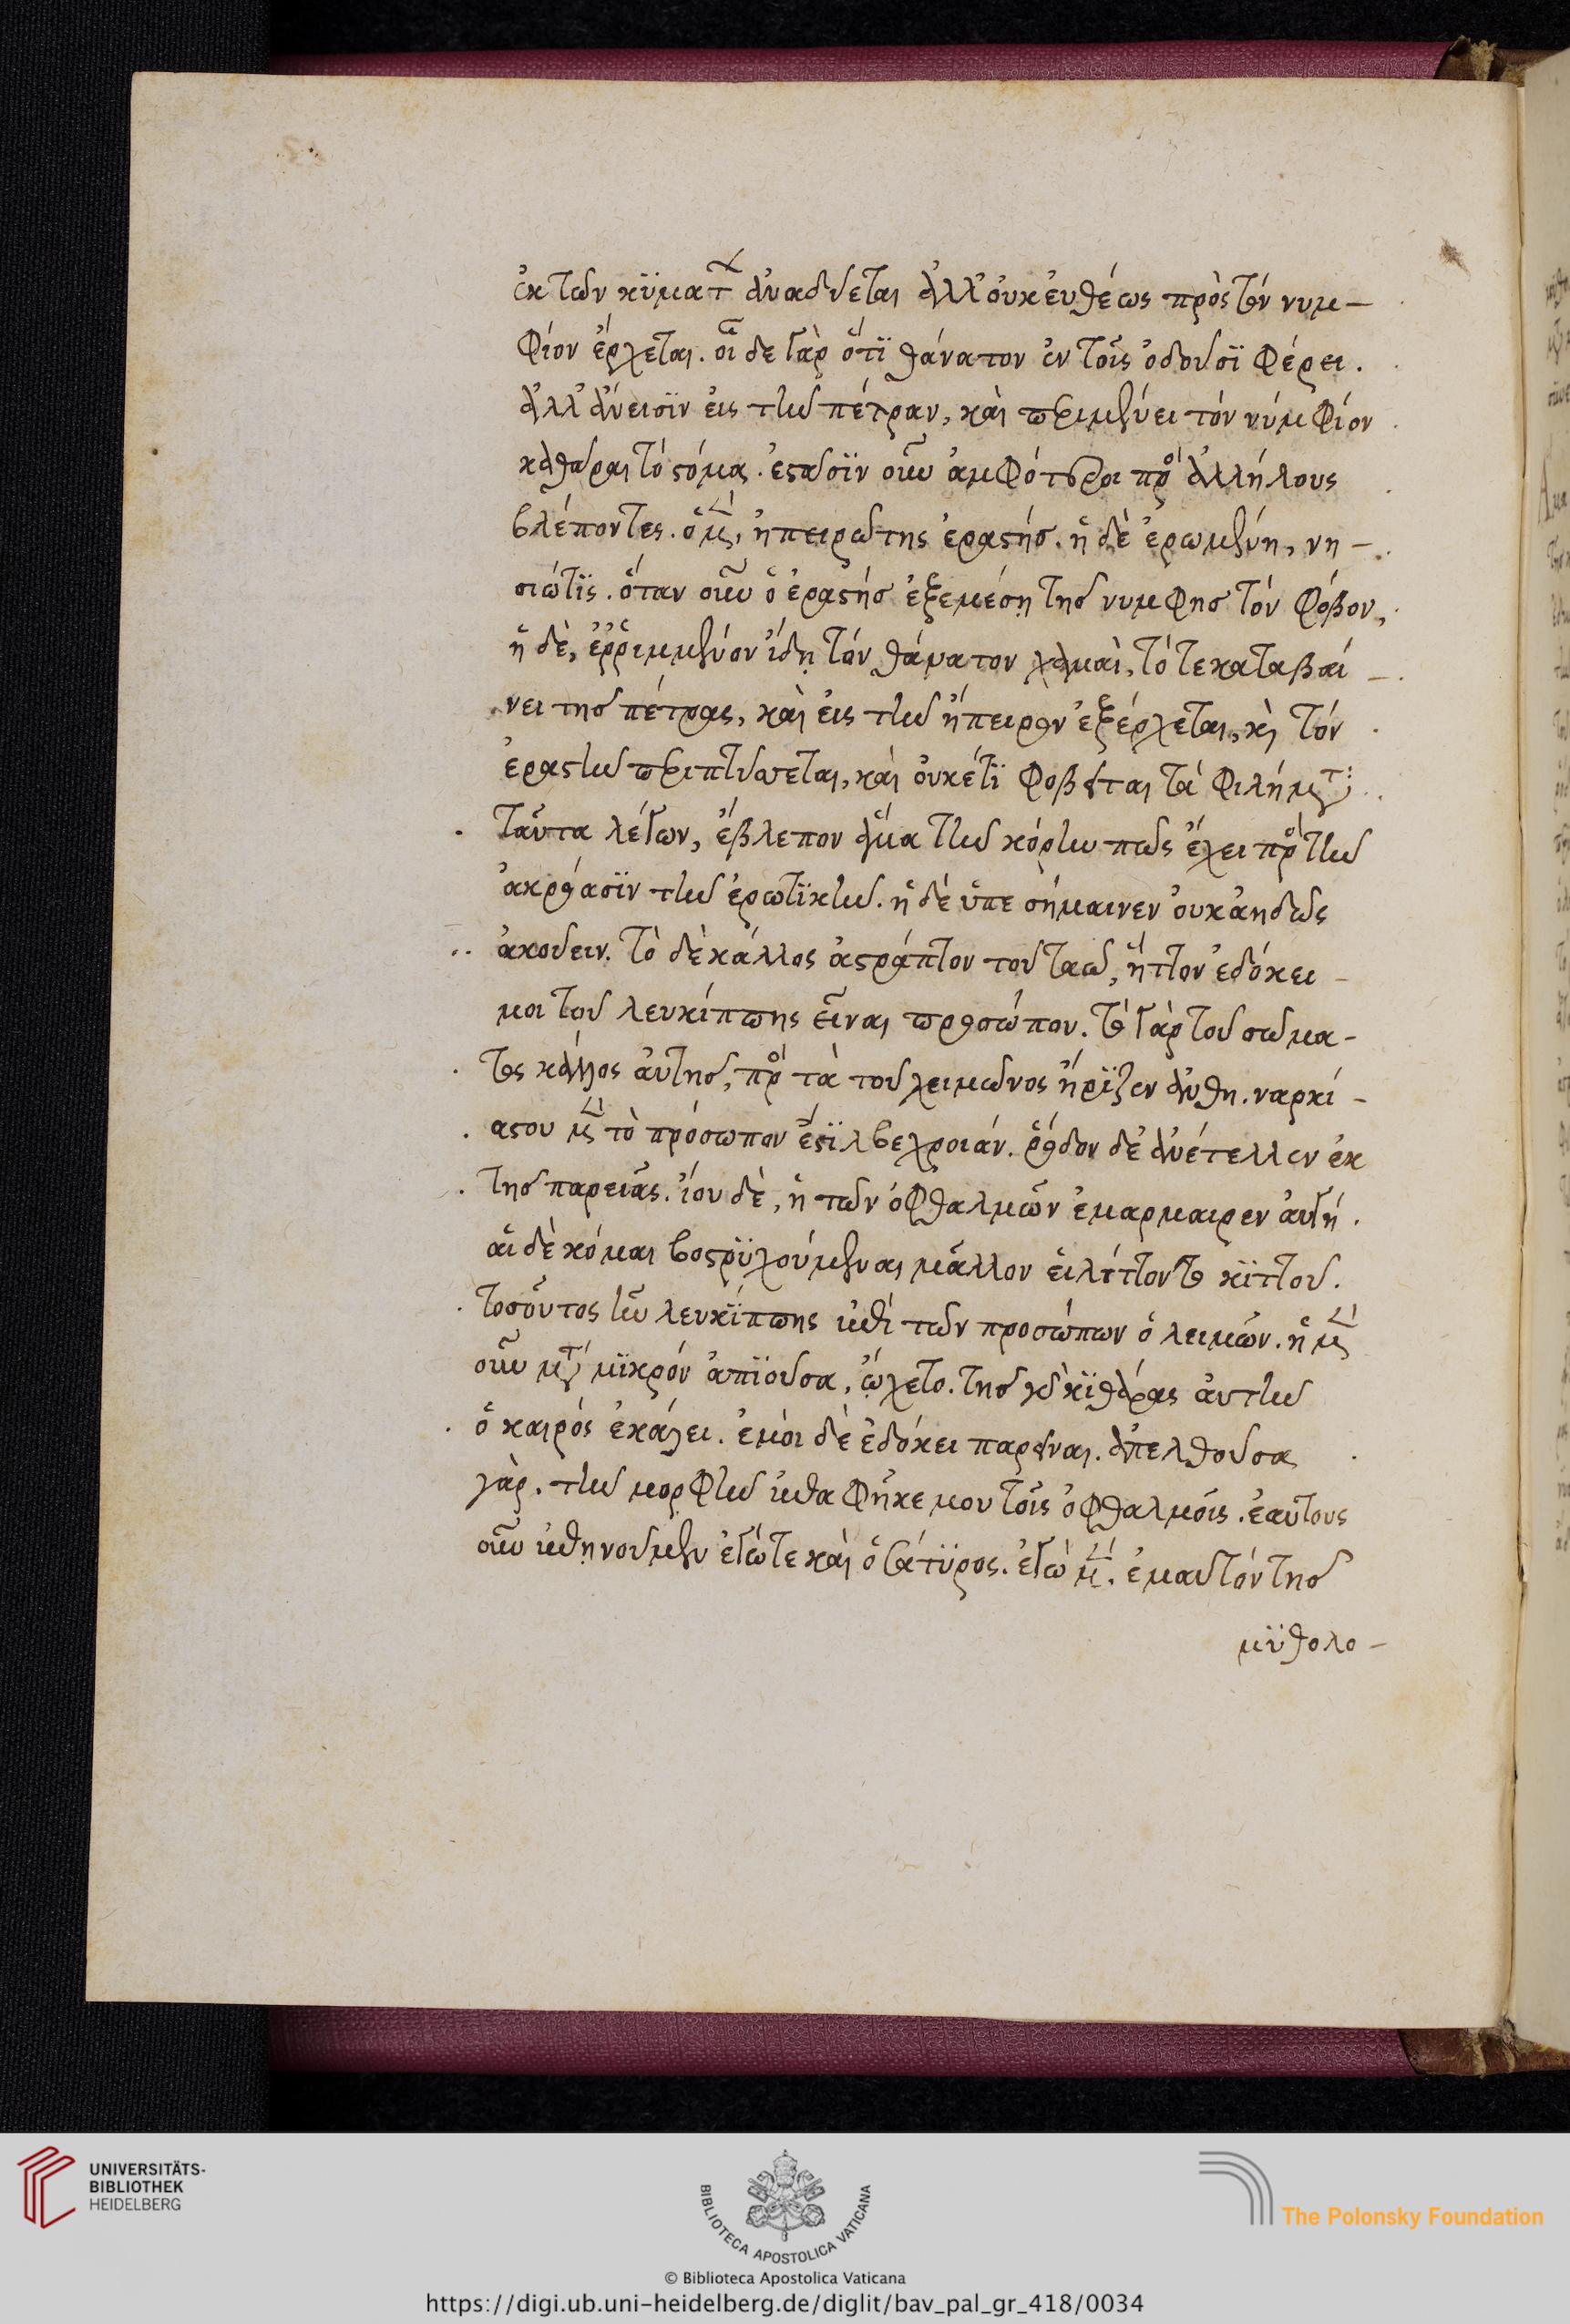 ἐκ τῶν κϋμάτων ἀναδύεται ἀλλ' οὐκ ἐυθέως πρὸς τὸν νυμ-
φίον ἔρχεται. οἶδε γὰρ ὅτϊ θάνατον ἐν τοῖς ὀδοῦσϊ φέρει.
ἀλλ' ἄνεισϊν ἐις τὴν πέτραν, καὶ περιμένει τὸν νύμφίον
καθᾶραι τὸ στόμα. ἑστᾶσϊν οὖν ἀμφότεροι πρὸς ἀλλήλους
βλέποντες. ὁ μὲν, ἠπειρώτης ἐραστής. ἡ δὲ ἐρωμένη, νη-
σιώτϊς. ὅταν οὖν ὁ ἐραστὴς ἐξεμέσῃ τῆς νυμφης τὸν φόβον,
ἡ δὲ, ἐῤῥιμμένον ἴδῃ τὸν θάνατον χαμαὶ, τότε καταβαί-
νει τῆς πέτρας, καὶ ἐις τὴν ἤπειρον ἐξέρχεται, κὶ τὸν
ἐραστὴν περιπτύσσεται, καὶ οὐκέτϊ φοβεῖται τὰ φιλήματα:
ταῦτα λέγων, ἔβλεπον ἅμα τὴν κόρην πῶς ἔχει πρὸς τὴν
ἀκρόασϊν τὴν ἐρωτϊκήν. ἡ δὲ ὑπεσήμαινεν οὐκ ἀηδῶς
ἀκούειν. τὸ δὲ κάλλος ἀστράπτον τοῦ ταῶ, ἧττον ἐδόκει
μοι τοῦ λευκίππης εἶναι προσώπου. τὸ γὰρ τοῦ σώμα-
τος κάλλος αὐτῆς, πρὸς τὰ τοῦ λειμῶνος ἤρϊζεν ἄνθη. ναρκί-
σσου μὲν τὸ πρόσωπον ἔστϊλβε χροιάν. ῥόδον δὲ ἀνέτελλεν ἐκ
τῆς παρειᾶς. ἴον δὲ, ἡ τῶν ὀφθαλμῶν ἐμάρμαιρεν ἀυγή.
αἱ δὲ κόμαι βοστρϋχούμεναι μᾶλλον εἱλίττοντο κϊττοῦ.
τοσοῦτος ἦν λευκϊππης ἐπὶ τῶν προσώπων ὁ λειμών. ἡ μὲν
οὖν μετὰ μϊκρὸν ἀπϊοῦσα, ᾤχετο. τῆς γὰρ κϊθάρας ἀυτὴν
ὁ καιρὸς ἐκάλει. ἐμοὶ δὲ ἐδόκει παρεῖναι. ἀπελθοῦσα
γὰρ, τὴν μορφὴν ἐπαφῆκέ μου τοῖς ὀφθαλμοῖς. ἑαυτοὺς
οὖν ἐπῃνοῦμεν ἐγώ τε καὶ ὁ σάτϋρος. ἐγὼ μὲν. ἐμαυτὸν τῆς
μϋθολο-
UNIVERSITÄTS-
BIBLIOTHEK
HEIDELBERG
BIBLIOTECA APOSTOLICA VATICANA
The Polonsky Foundation
© Biblioteca Apostolica Vaticana
https://digi.ub.uni-heidelberg.de/diglit/bav_pal_gr_418/0034